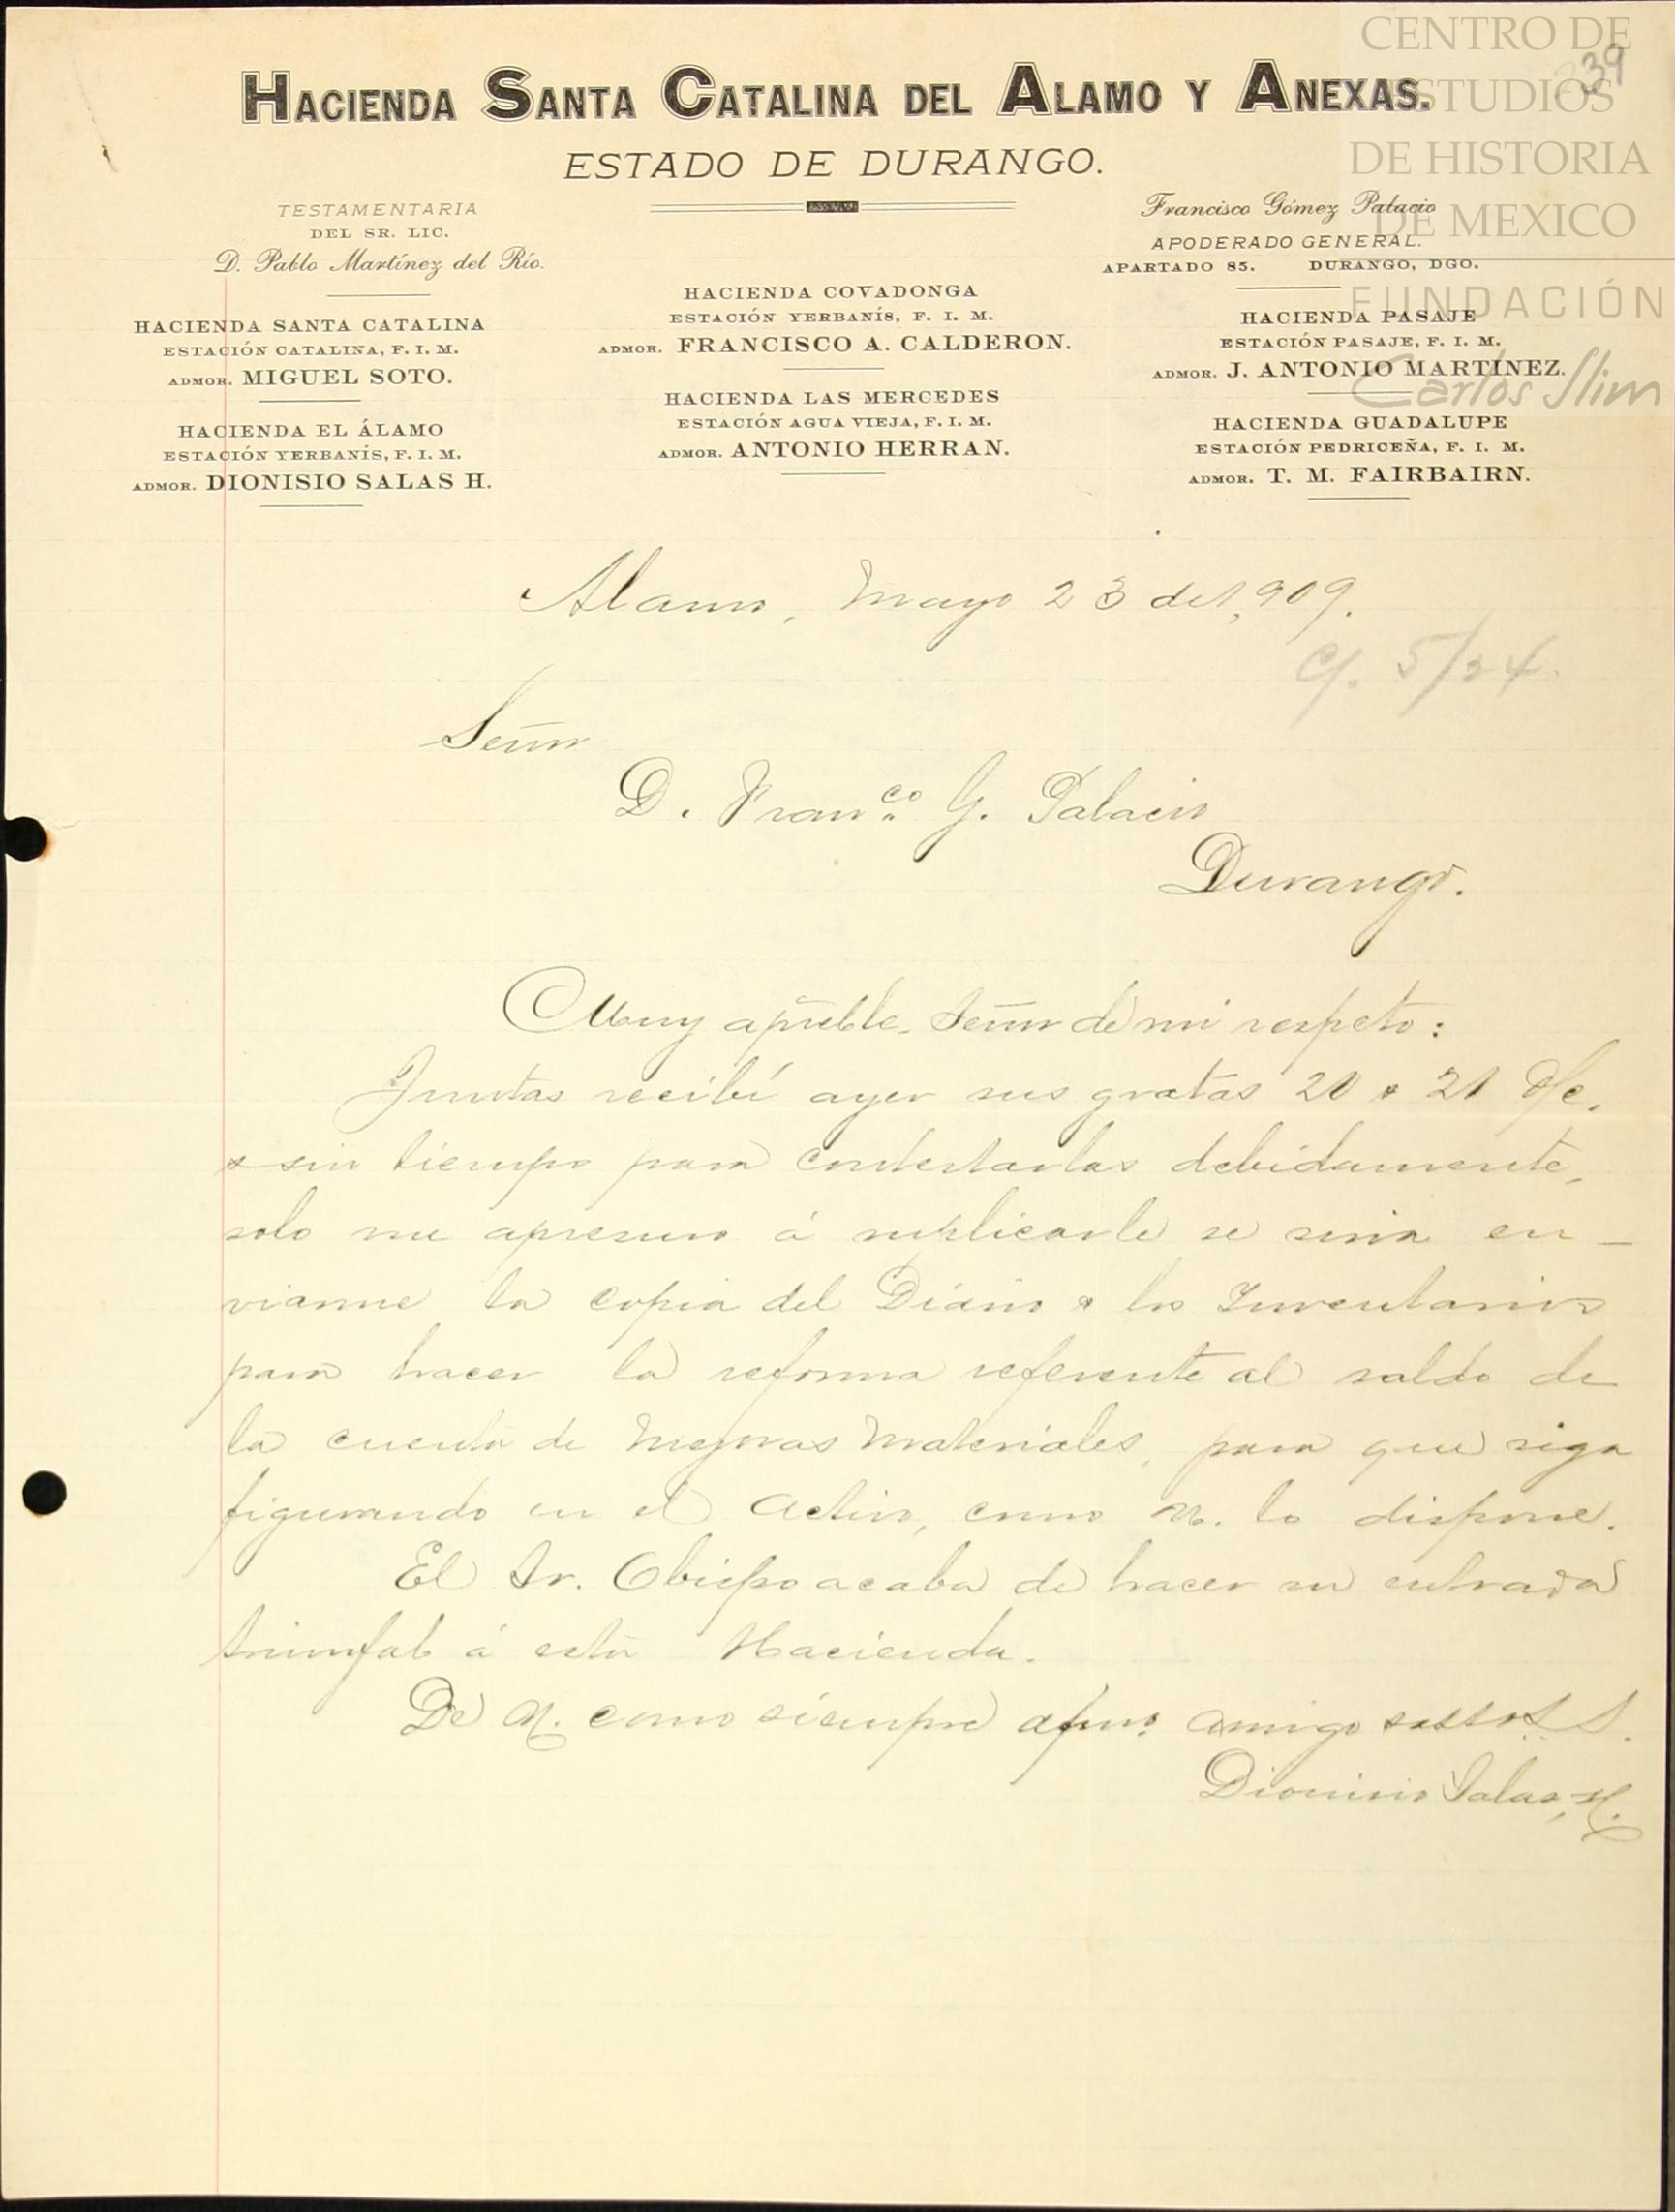 CENTRO DE
ESTUDIOS
DE HISTORIA
DE MEXICO
FUNDACIÓN
Carlos Slim
39
HACIENDA SANTA CATALINA DEL ALAMO Y ANEXAS.
ESTADO DE DURANGO.
TESTAMENTARIA
DEL SR. LIC.
D. Pablo Martínez del Río.
HACIENDA SANTA CATALINA
ESTACIÓN CATALINA, F. I. M.
ADMOR. MIGUEL SOTO.
HACIENDA EL ÁLAMO
ESTACIÓN YERBANÍS, F. I. M.
ADMOR. DIONISIO SALAS H.
HACIENDA COVADONGA
ESTACIÓN YERBANÍS, F. I. M.
ADMOR. FRANCISCO A. CALDERON.
HACIENDA LAS MERCEDES
ESTACIÓN AGUA VIEJA, F. I. M.
ADMOR. ANTONIO HERRAN.
Francisco Gómez Palacio
APODERADO GENERAL.
APARTADO 85. DURANGO, DGO.
HACIENDA PASAJE
ESTACIÓN PASAJE, F. I. M.
ADMOR. J. ANTONIO MARTINEZ.
HACIENDA GUADALUPE
ESTACIÓN PEDRICEÑA, F. I. M.
ADMOR. T. M. FAIRBAIRN.
Alamo, Mayo 23 de 1,909.
C/. 5/24.
Señor
D. Franco. G. Palacio
Durango.
Muy apreble. Señor de mi respeto:
Juntas recibí ayer sus gratas 20 y 21 d/c.
y sin tiempo para contestarlas debidamente,
solo me apresuro á suplicarle se sirva en-
viarme la copia del Diario y los Inventarios
para hacer la reforma referente al saldo de
la cuenta de Mejoras Materiales, para que siga
figurando en el Activo, como U. lo dispone.
El Sr. Obispo acaba de hacer su entrada
triunfal á esta Hacienda.
De U. como siempre afmo. amigo S. S.
Dionisio Salas, H.